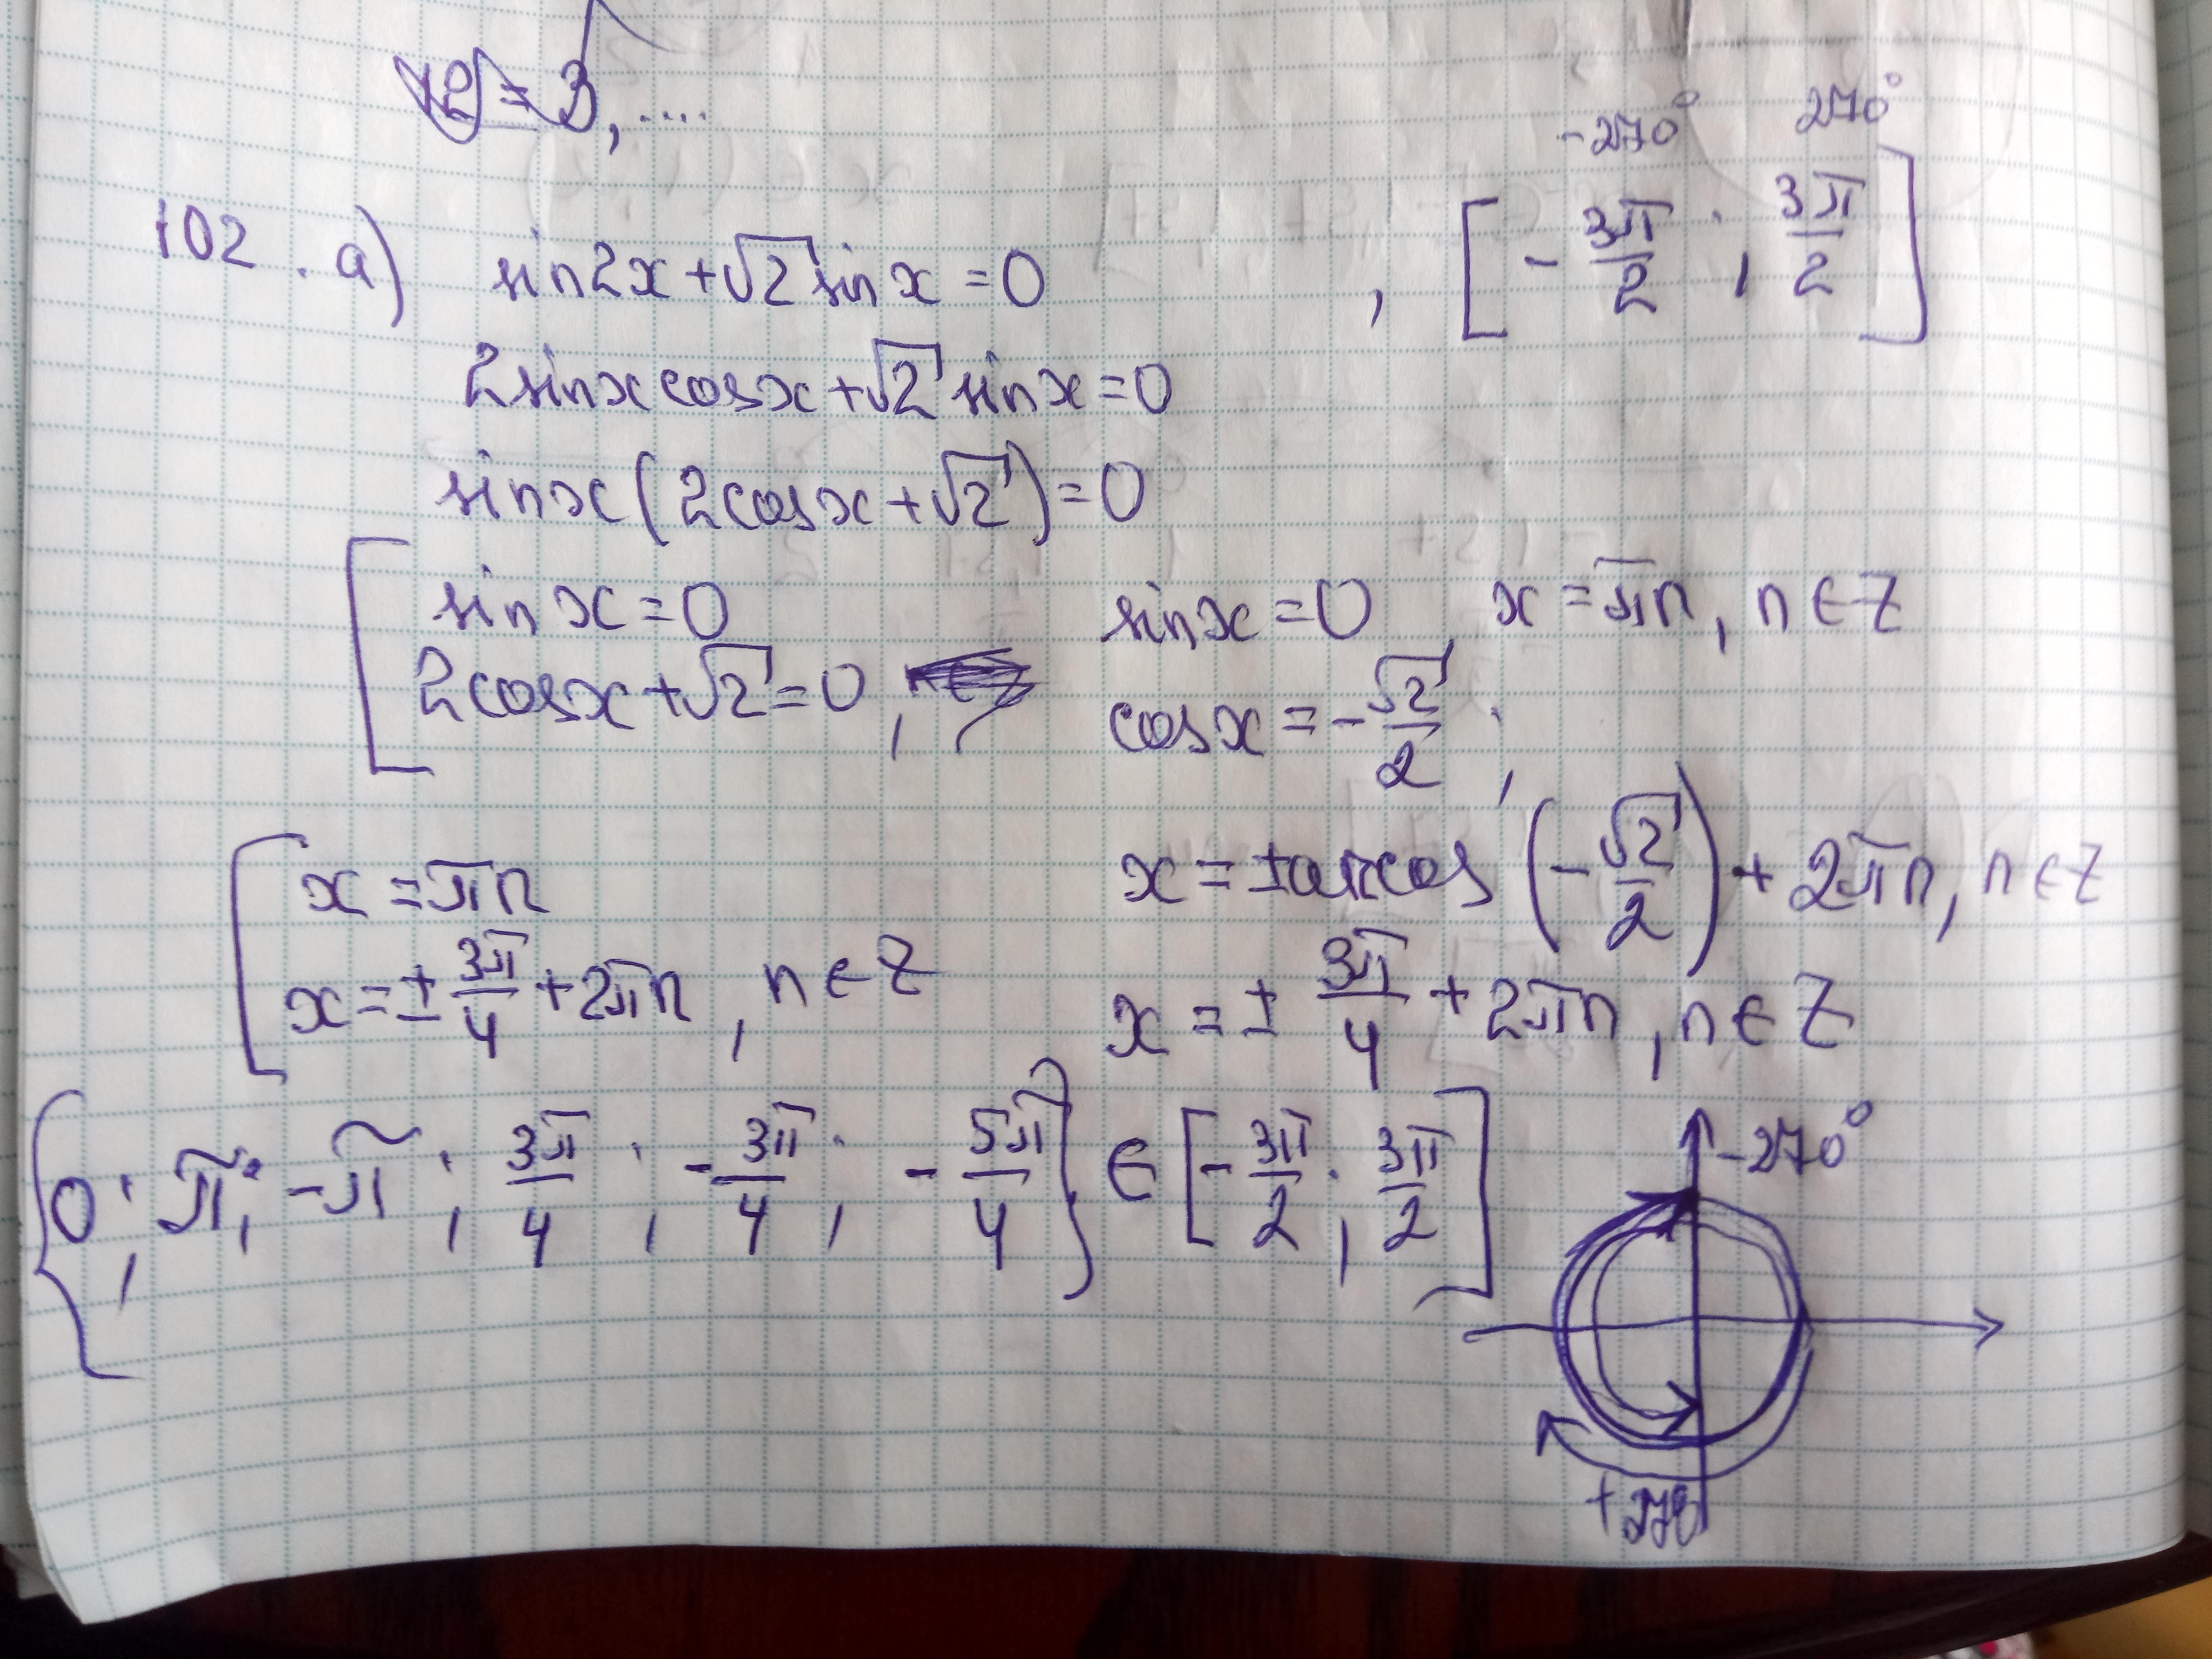 x2 = 3, ....
-270° 270°
102. а) sin2x+√2 sin x = 0 , [-3π/2 ; 3π/2]
2sinx cosx+√2 sinx=0
sinx(2cosx+√2)=0
sinx=0 sinx=0, x=πn, n∈Z
2cosx+√2=0, cosx=-√2/2;
x=πn x=±arccos(-√2/2)+2πn, n∈Z
x=±3π/4+2πn, n∈Z x=±3π/4+2πn, n∈Z
{0; π; -π; 3π/4; -3π/4; -5π/4} ∈ [-3π/2; 3π/2]
-270°
+270